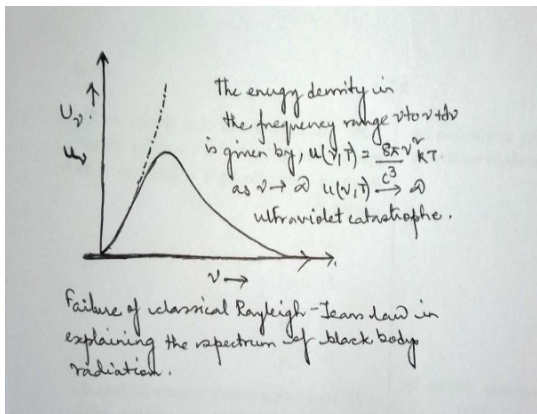 The energy density in
the frequency range ν to ν+dν
is given by, u(ν,T) = 8πν²/c³ kT.
as ν → ∞ u(ν,T) → ∞
ultraviolet catastrophe.
Uν ↑
uν
ν →
Failure of classical Rayleigh-Jeans law in
explaining the spectrum of black body
radiation.